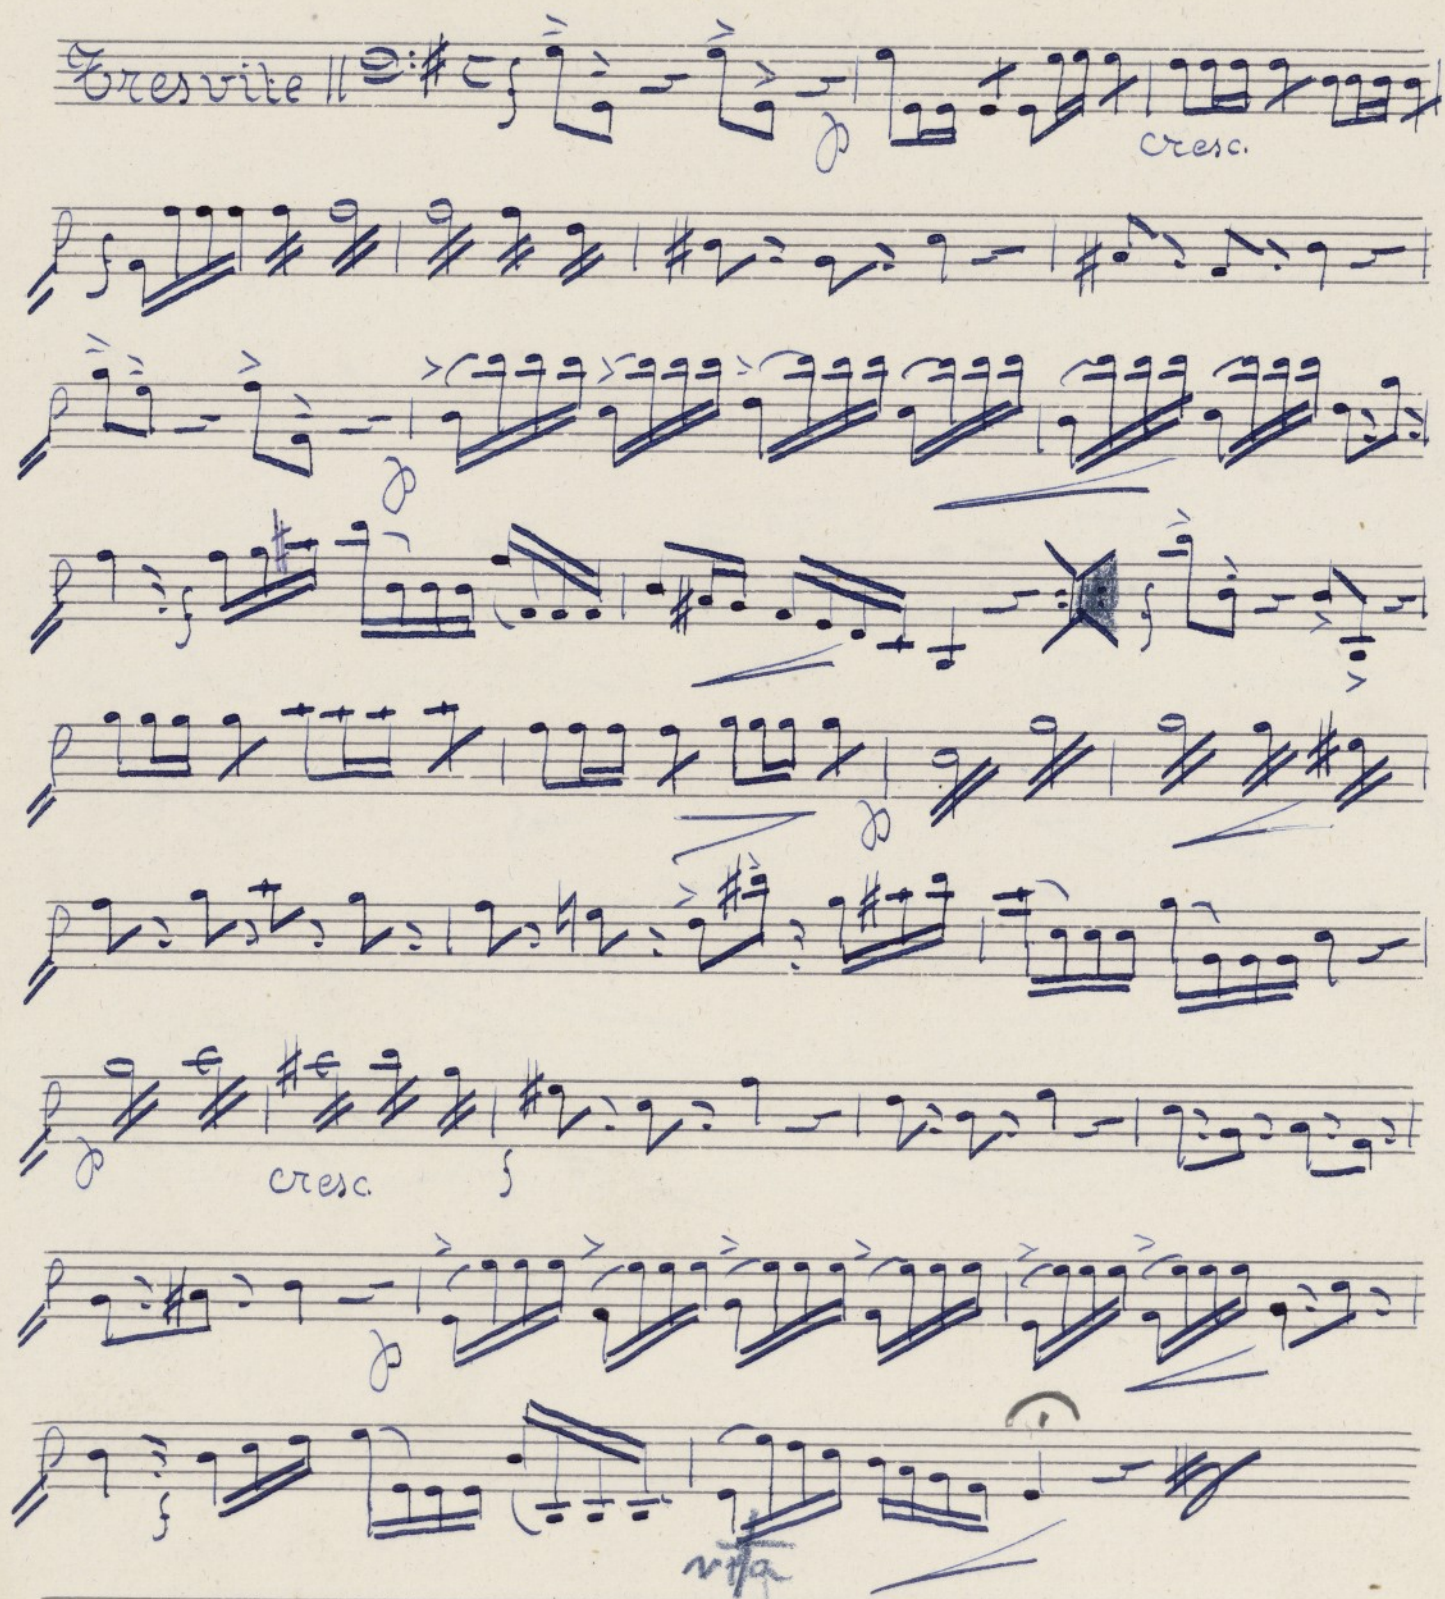 Tresvite
f p
cresc.
f
p
f f
p
p cresc. f
p
f